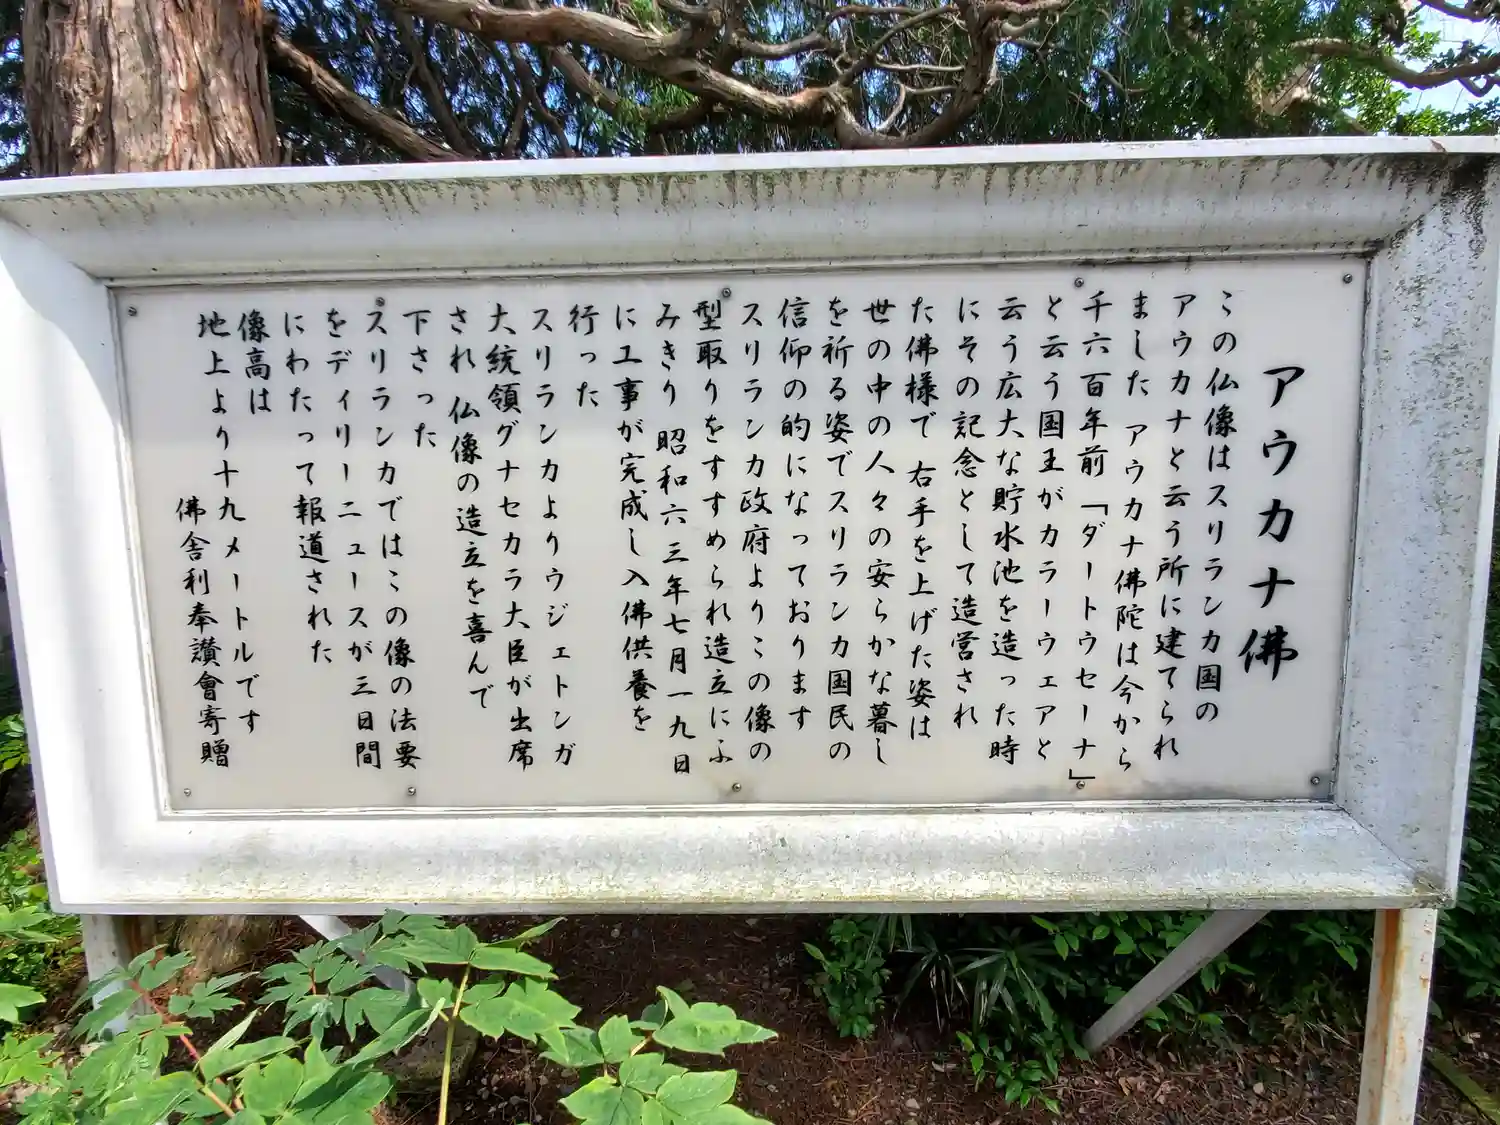 アウカナ佛
この仏像はスリランカ国の
アウカナと云う所に建てられ
ました アウカナ佛陀は今から
千六百年前「ダートウセーナ」
と云う国王がカラーウェアと
云う広大な貯水池を造った時
にその記念として造営され
た佛様で 右手を上げた姿は
世の中の人々の安らかな暮し
を祈る姿でスリランカ国民の
信仰の的になっております
スリランカ政府よりこの像の
型取りをすすめられ造立にふ
みきり 昭和六三年七月一九日
に工事が完成し入佛供養を
行った
スリランカよりウジェトンガ
大統領グナセカラ大臣が出席
され 仏像の造立を喜んで
下さった
スリランカではこの像の法要
をディリーニュースが三日間
にわたって報道された
像高は
地上より十九メートルです
佛舎利奉讃會寄贈